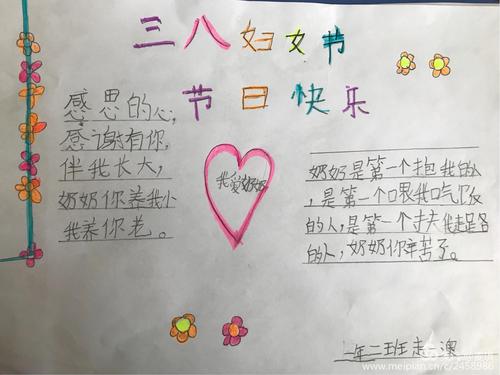 三八妇女节
节日快乐
感思的心,
感谢有你,
伴我长大,
奶奶你养我小
我养你老。
我爱奶奶
奶奶是第一个抱我的人
,是第一个喂我吃饭
的人,是第一个扶我走路
的人,奶奶你辛苦了。
一年二班
www.meipian.cn/c/2458986